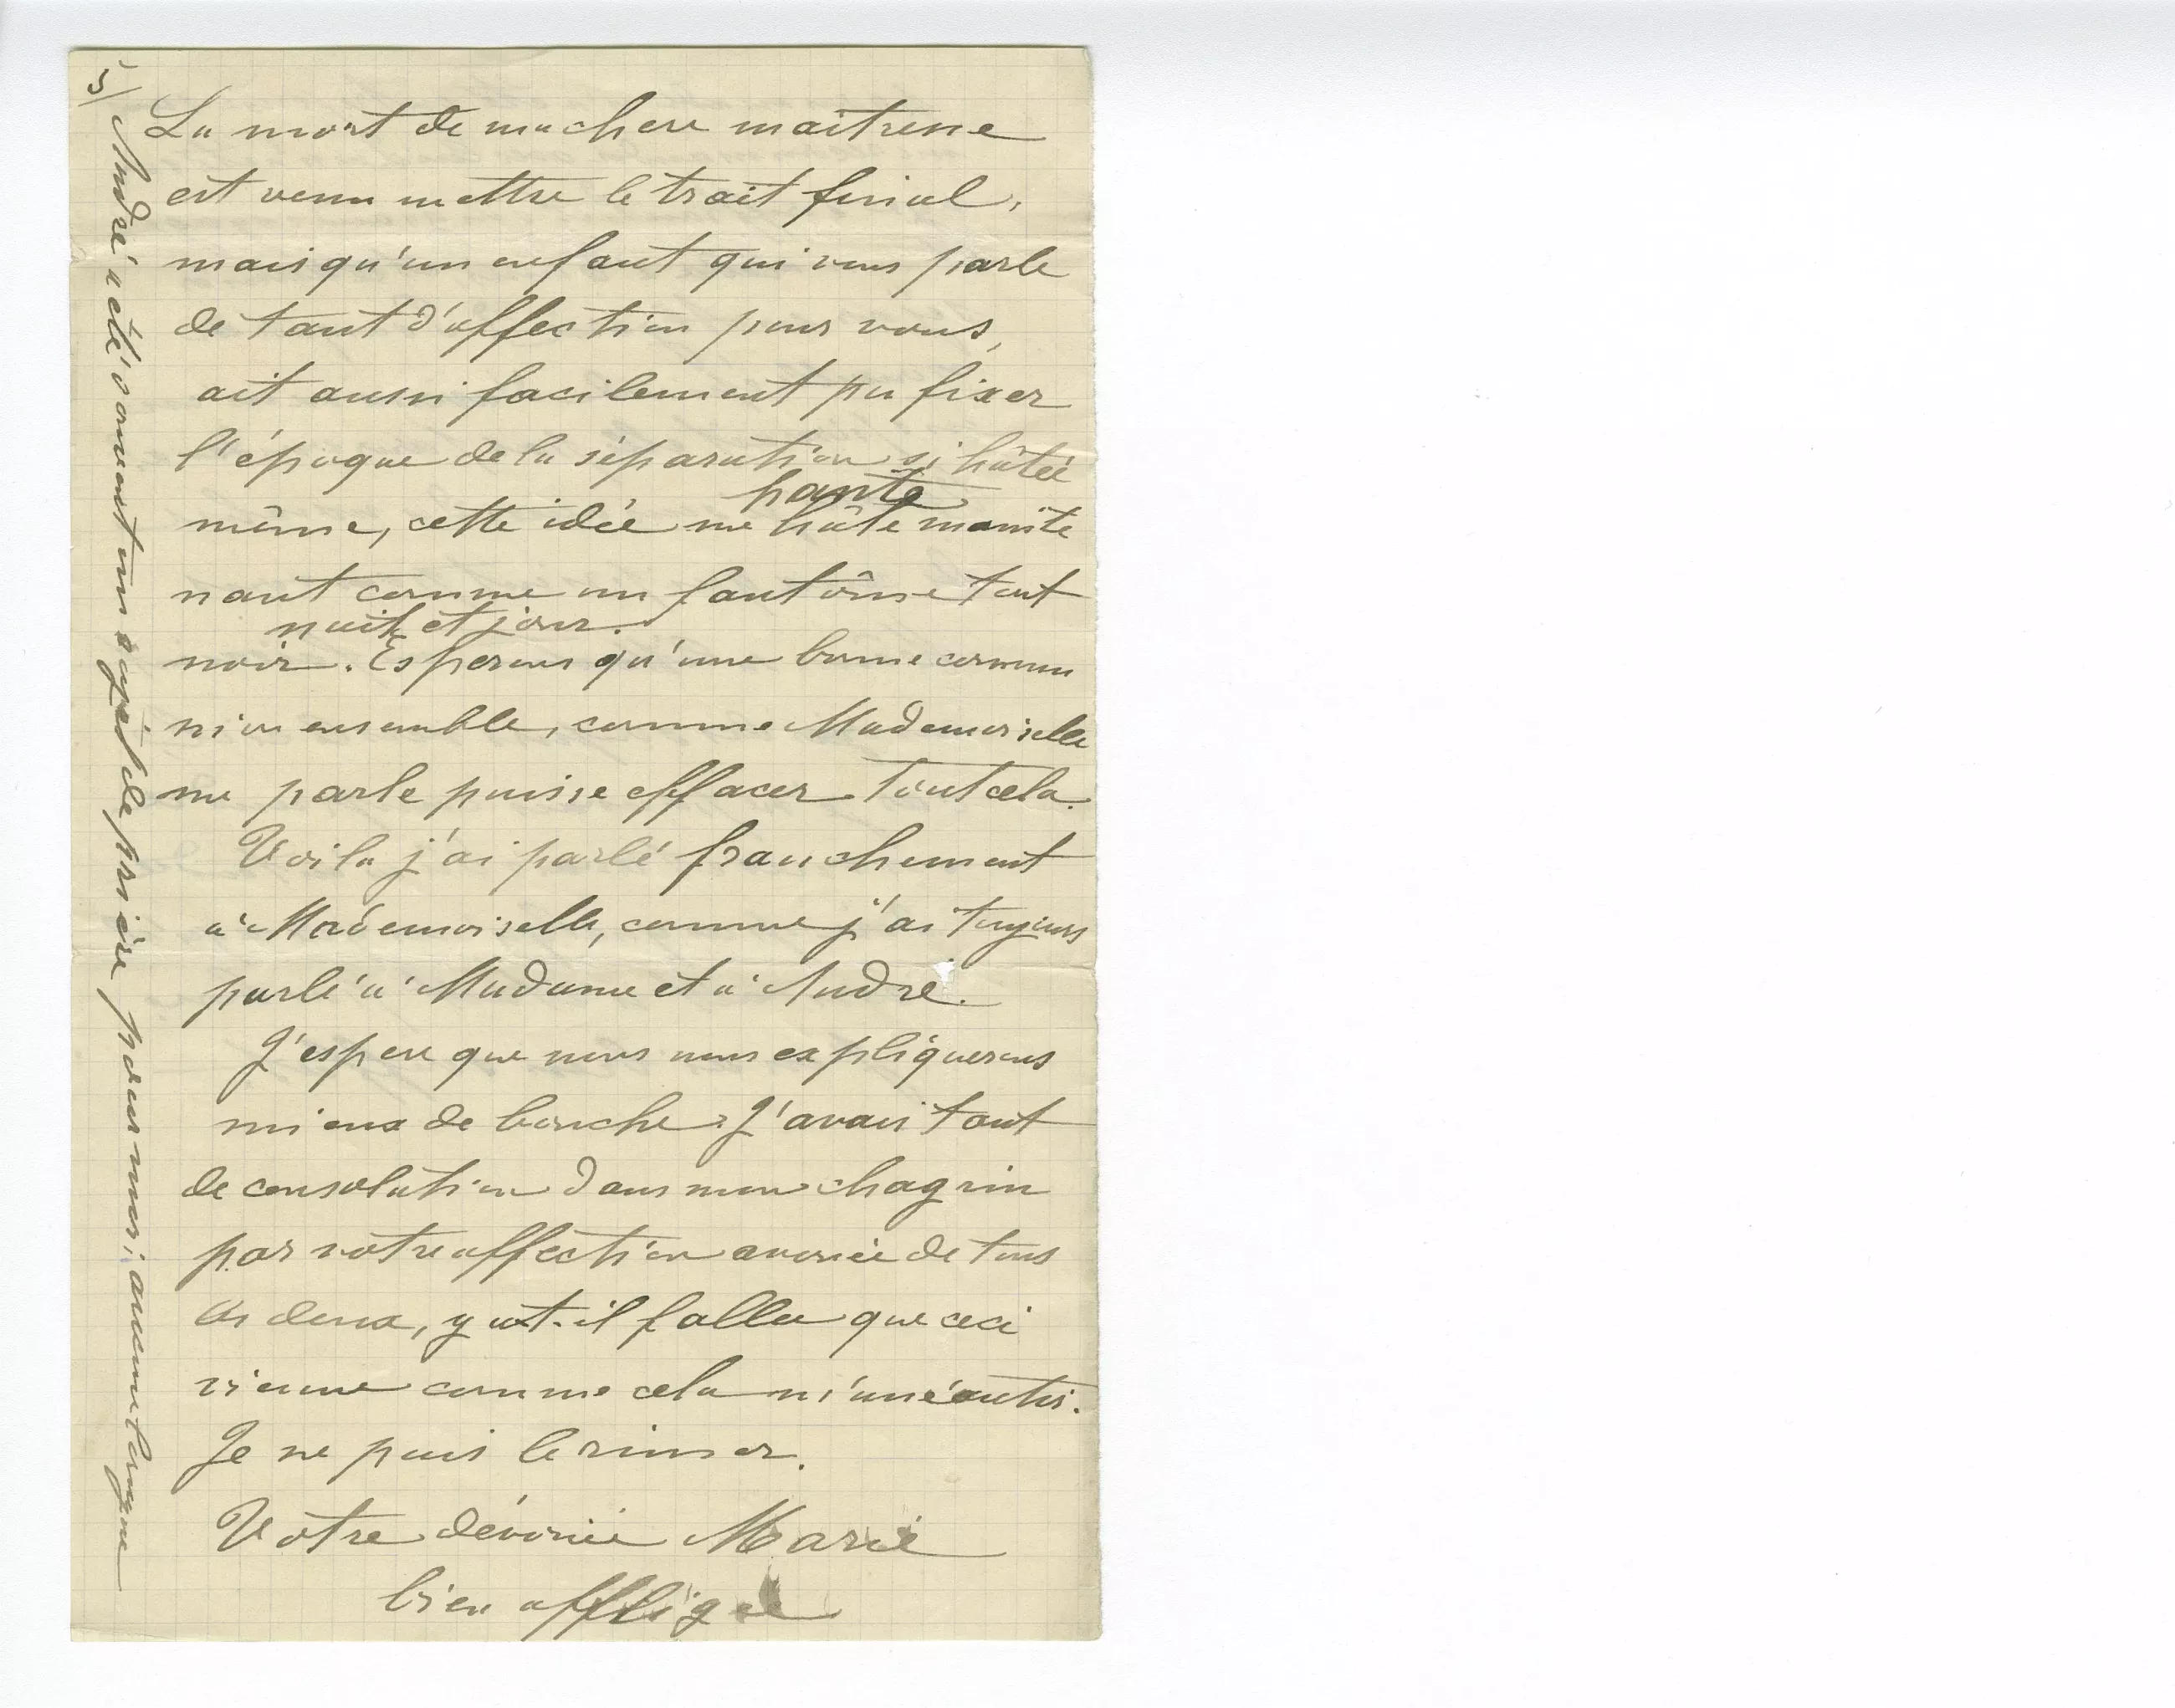 5/
La mort de ma chere maîtresse
est venu mettre le trait final,
mais qu'un enfant qui vous parle
de tant d'affection pour vous,
ait aussi facilement pu fixer
l'époque de la séparation si hâtée
hante
même, cette idée me hâte mainte
nant comme un fantôme tout
nuit et jour.
noir. Esperons qu'une bonne commu
nion ensemble, comme Mademoiselle
me parle puisse effacer tout cela.
Voila j'ai parlé franchement
à Mademoiselle, comme j'ai toujours
parlé à Madame et à André.
J'espere que nous nous expliquerons
mieux de bouche. J'avais tant
de consolation dans mon chagrin
par votre affection avouée de tous
les deux, y eut-il fallu que ceci
vienne comme cela m'anéantir.
Je ne puis le rimer.
Votre dévouée Marie
bien affligée
André a été souvent un sujet de prière pour moi, aucune langue